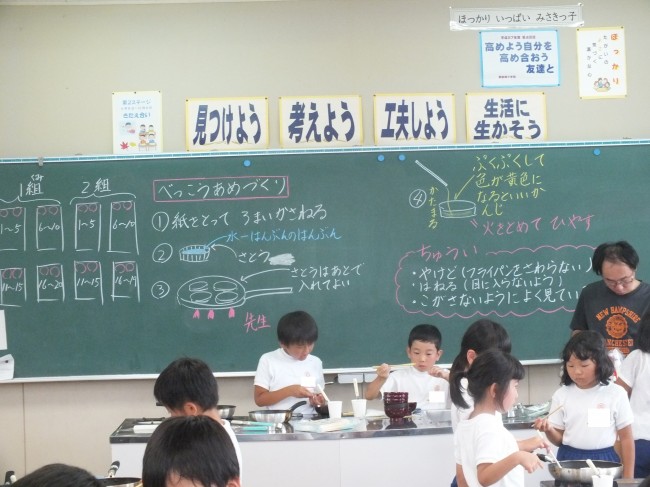 ほっかり いっぱい みさきっ子
高めよう自分を
高め合おう
友達と
ほっかり
見つけよう
考えよう
工夫しよう
生活に
生かそう
1組
2組
1~5
6~10
1~5
6~10
11~15
16~20
11~15
16~19
べっこうあめづくり
①紙をとって 3まいかさねる
②
水-はんぶんのはんぶん
さとう
③
さとうはあとで
入れてよい
先生
④
かたまる
ぷくぷくして
色が黄色に
なるといいか
んじ
火をとめて ひやす
ちゅうい
・やけど(フライパンをさわらない)
・はねる(目に入らないよう)
・こがさないようによく見てい
NEW HAMPSHIRE